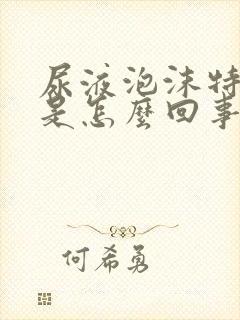 尿液泡沫特
是怎麼回事
何希勇